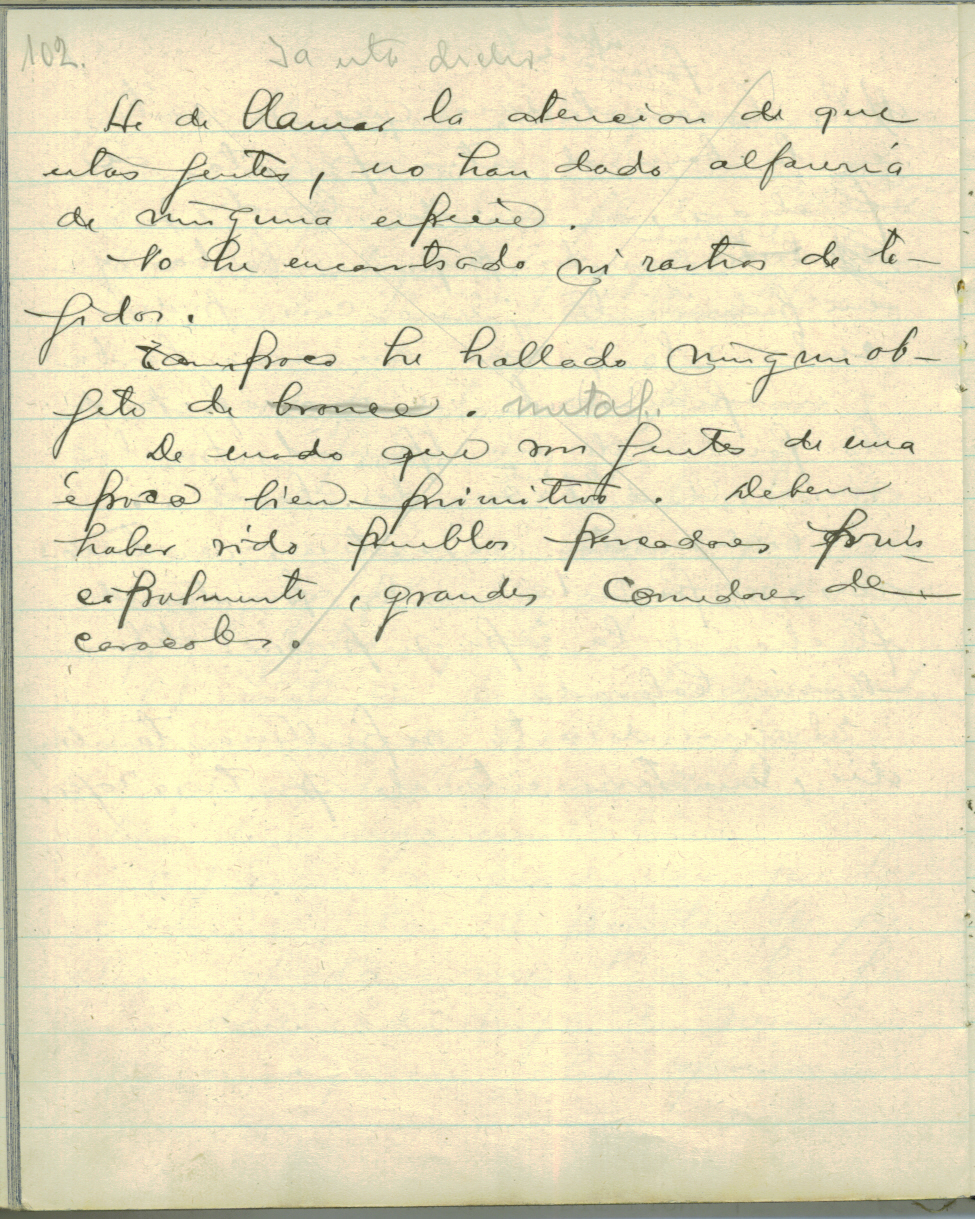 102. Ya esta dicho
He de llamar la atencion de que
estas gentes, no han dado alfareria
de ninguna especie.
No he encontrado ni rastros de te-
gidos.
Tampoco he hallado ningun ob-
geto de bronce. metal.
De modo que son gentes de una
época bien primitiva. Deben
haber sido pueblos pescadores prin
cipalmente, grandes comedores de
caracoles.